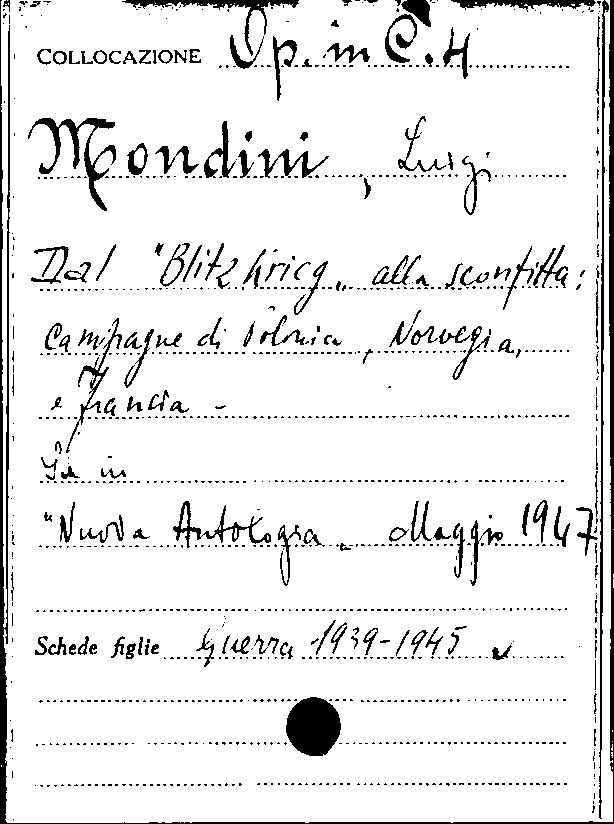 COLLOCAZIONE Op. in C. 4
Mondini, Luigi
Dal "Blitzkrieg" alla sconfitta:
Campagne di Polonia, Norvegia,
e Francia -
in
"Nuova Antologia" Maggio 1947
Schede figlie Guerra 1939-1945